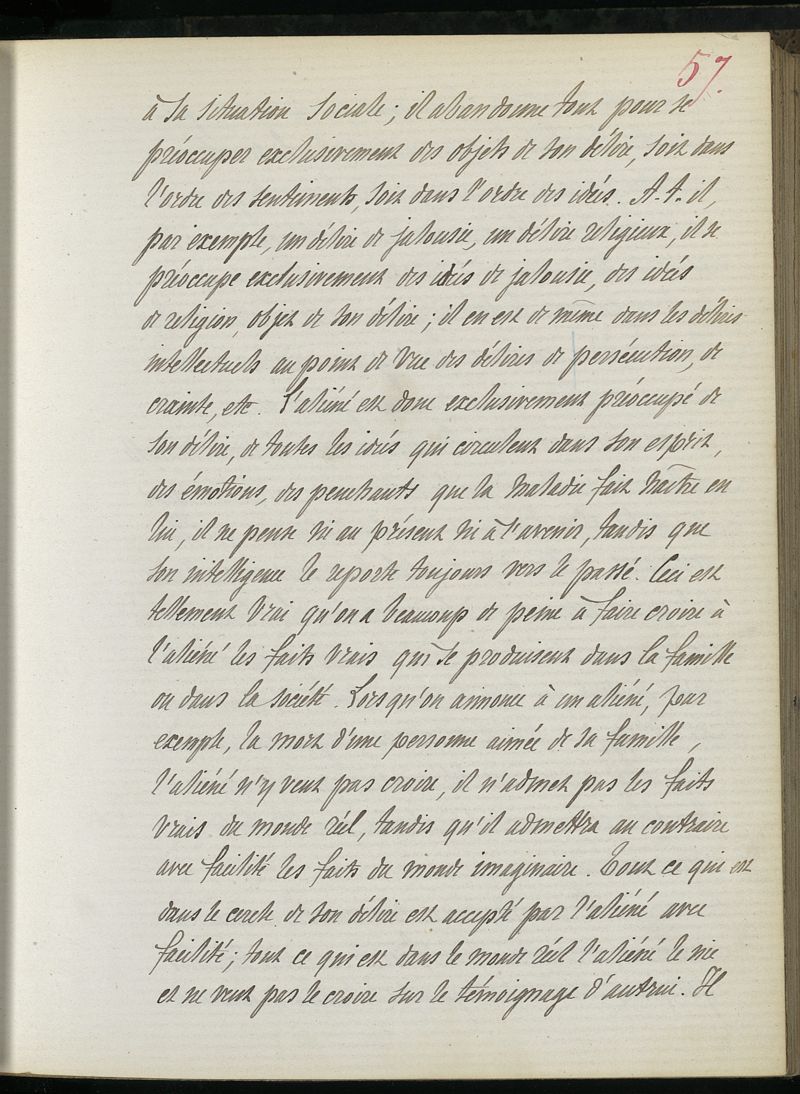 57.
à sa situation sociale ; il abandonne tout pour se
préoccuper exclusivement des objets de son délire, soit dans
l'ordre des sentiments, soit dans l'ordre des idées. A-t-il,
par exemple, un délire de jalousie, un délire religieux, il se
préoccupe exclusivement des idées de jalousie, des idées
de religion, objet de son délire ; il en est de même dans les délires
intellectuels au point de vue des délires de persécution, de
crainte, etc. L'aliéné est donc exclusivement préoccupé de
son délire, de toutes les idées qui circulent dans son esprit,
des émotions, des penchants que la maladie fait naître en
lui, il ne pense ni au présent ni à l'avenir, tandis que
son intelligence le reporte toujours vers le passé. Ceci est
tellement vrai qu'on a beaucoup de peine à faire croire à
l'aliéné les faits vrais qui se produisent dans la famille
ou dans la société. Lorsqu'on annonce à un aliéné, par
exemple, la mort d'une personne aimée de sa famille,
l'aliéné n'y veut pas croire, il n'admet pas les faits
vrais du monde réel, tandis qu'il admettra au contraire
avec facilité les faits du monde imaginaire. Tout ce qui est
dans le cercle de son délire est accepté par l'aliéné avec
facilité ; tout ce qui est dans le monde réel l'aliéné le nie
et ne veut pas le croire sur le témoignage d'autrui. Il